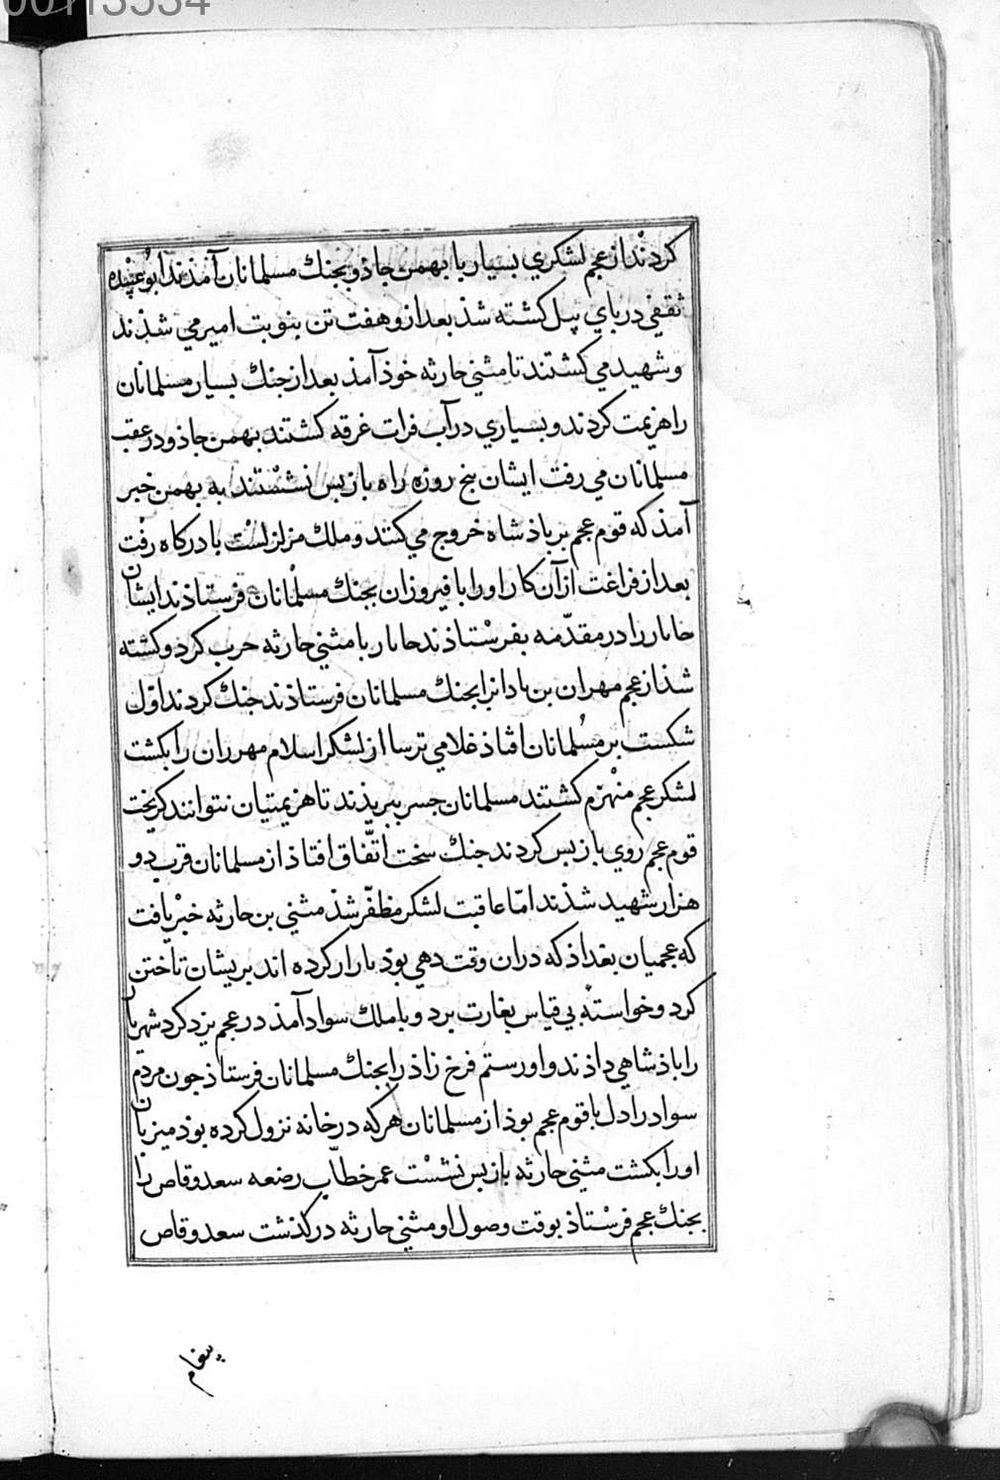 00113534
كردند از عجم لشكري بسيار با بهمن جاذو بجنك مسلمانان آمذند ابو عبيده
ثقفي در پاي پيل كشته شذ بعد ازو هفت تن بنوبت امير مي شذند
و شهيد مي كشتند تا مثني حارثه خوذ آمذ بعد از جنك بسيار مسلمانان
را هزيمت كردند و بسياري در آب فرات غرقه كشتند بهمن جاذو در عقب
مسلمانان مي رفت ايشان پنج روزه راه باز پس نشستند به بهمن خبر
آمذ كه قوم عجم بر پاذشاه خروج مي كنند و ملك مزلزلست با دركاه رفت
بعد از فراغت از آن كار او را با فيروزان بجنك مسلمانان فرستاذند ايشان
جابار را در مقدّمه بفرستاذند جابار با مثني حارثه حرب كرد و كشته
شذ از عجم مهران بن باذانرا بجنك مسلمانان فرستاذند جنك كردند اوّل
شكست بر مسُلمانان افتاذ غلامي ترسا از لشكر اسلام مهرران را بكشت
لشكر عجم منهزم كشتند مسلمانان جسر ببريذند تا هزيمتيان نتوانند كريخت
قوم عجم روي باز پس كردند جنك سخت اتّفاق افتاذ از مسلمانان قرب دو
هزار شهيد شذند امّا عاقبت لشكر مظفّر شذ مثني بن حارثه خبر يافت
كه عجميان بغداذ كه دران وقت دهي بوذ بازار كرده اند بريشان تاختن
كرد و خواسته بي قياس بغارت برد و با ملك سواد آمذ در عجم يزد كرد شهريار
را باذشاهي داذند و او رستم فرخ زاذ را بجنك مسلمانان فرستاذ جون مردم
سواد را دل با قوم عجم بوذ از مسلمانان هر كه در خانه نزول كرده بوذ ميزبان
او را بكشت مثني حارثه باز پس نشست عمر خطّاب رضعه سعد وقاص را
بجنك عجم فرستاذ بوقت وصول او مثني حارثه در كذشت سعد وقاص
پيغام